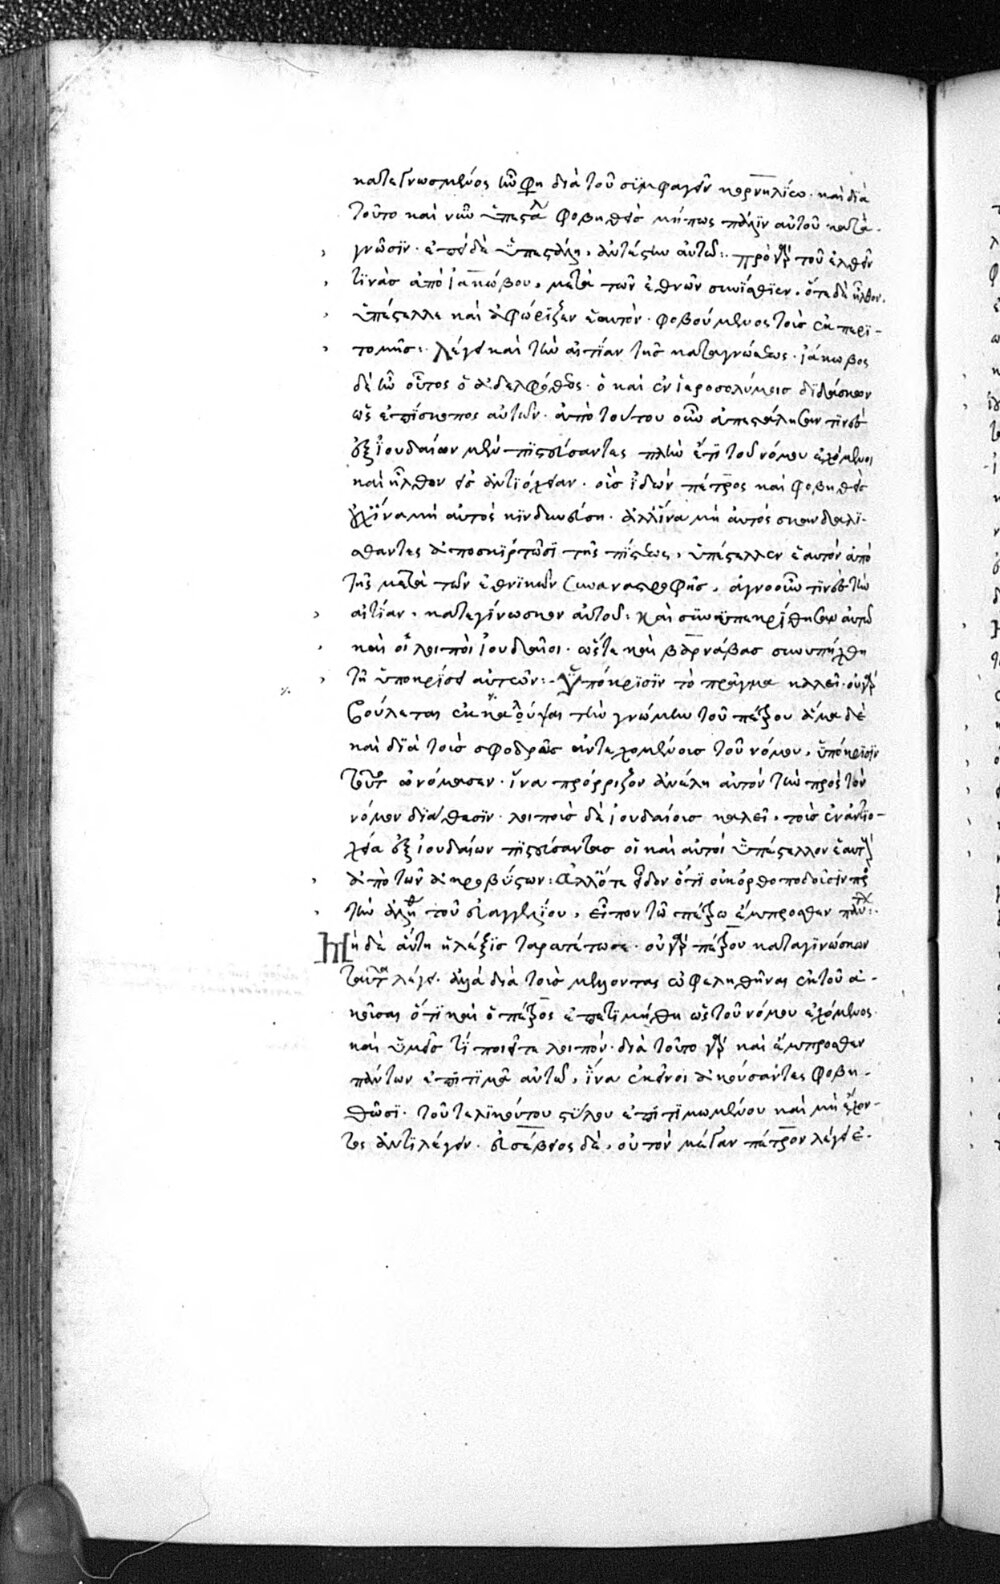 κατεγνωσμένος ἦν φη διὰ τοῦ συμφαγεῖν κορνηλίῳ· καὶ διὰ
τοῦτο καὶ νῦν ὑπεστάλη φοβηθεὶς μήπως πάλιν αὐτοῦ κατα-
γνῶσιν· ἐπειδὴ ὑπεστάλη, ἀντέστην αὐτῷ: πρὸ γὰρ τοῦ ἐλθεῖν
τινὰς ἀπὸ ἰακώβου, μετὰ τῶν ἐθνῶν συνήσθιεν· ὅτε δὲ ἦλθον,
ὑπέστελλε καὶ ἀφώριζεν ἑαυτὸν· φοβούμενος τοὺς ἐκ περι-
τομῆς: λέγει καὶ τὴν αἰτίαν τῆς καταγνώσεως· ἰάκωβος
δὲ ἦν οὗτος ὁ ἀδελφόθεος· ὁ καὶ ἐν ἱεροσολύμοις διδάσκων
ὡς ἐπίσκοπος αὐτῶν· ἀπὸ τούτου οὖν ἀπεστάλησαν τινὲς
ἐξ ἰουδαίων μὲν πιστεύσαντες πλὴν ἔτι τοῦ νόμου ἐχόμενοι
καὶ ἦλθον εἰς ἀντιόχειαν· οὓς ἰδὼν πέτρος καὶ φοβηθεὶς
οὐχ ἵνα μὴ αὐτὸς κινδυνεύσῃ· ἀλλ' ἵνα μὴ αὐτοὶ σκανδαλι-
σθέντες ἀποσκιρτῶσι τῆς πίστεως, ὑπέστελλεν ἑαυτὸν ἀπὸ
τῆς μετὰ τῶν ἐθνικῶν συναναστροφῆς, ἀγνοοῦν τινὲς τὴν
αἰτίαν, κατεγίνωσκον αὐτοῦ: καὶ συνυπεκρίθησαν αὐτῷ
καὶ οἱ λοιποὶ ἰουδαῖοι· ὥστε καὶ βαρνάβας συνυπήχθη
τῇ ὑποκρίσει αὐτῶν:- ὑπόκρισιν τὸ πρᾶγμα καλεῖ· οὐ γὰρ
βούλεται ἐκκαλύψαι τὴν γνώμην τοῦ πέτρου ἅμα δὲ
καὶ διὰ τοὺς σφοδρῶς ἀντεχομένους τοῦ νόμου, ὑπόκρισιν
τοῦτο ὠνόμασεν· ἵνα πρόρριζον ἀνέλῃ αὐτῶν τὴν πρὸς τὸν
νόμον διάθεσιν· λοιποὺς δὲ ἰουδαίους καλεῖ, τοὺς ἐν ἀντιο-
χείᾳ ἐξ ἰουδαίων πιστεύσαντας οἳ καὶ αὐτοὶ ὑπέστελλον ἑαυτοὺς
ἀπὸ τῶν ἀκροβύστων: ἀλλ' ὅτε εἶδον ὅτι οὐκ ὀρθοποδοῦσιν πρὸς
τὴν ἀλήθειαν τοῦ εὐαγγελίου, εἶπον τῷ πέτρῳ ἔμπροσθεν πάντων:-
Μηδὲ αὕτη ἡ λέξις ταραττέτω σε· οὐ γὰρ πέτρου καταγινώσκων
ταῦτα λέγει· ἀλλὰ διὰ τοὺς μέλλοντας ὠφεληθῆναι ἐκ τοῦ ἀ-
κοῦσαι ὅτι καὶ ὁ πέτρος ἐπετιμήθη ὡς τοῦ νόμου ἐχόμενος
καὶ ὑμεῖς τί ποιεῖτε λοιπὸν· διὰ τοῦτο γὰρ καὶ ἔμπροσθεν
πάντων ἐπιτιμᾷ αὐτῷ, ἵνα ἐκεῖνοι ἀκούσαντες φοβη-
θῶσι· τοῦ τηλικούτου στύλου ἐπιτιμωμένου καὶ μὴ ἔχον-
τος ἀντιλέγειν· εὐσέβιος δὲ, οὐ τὸν μέγαν πέτρον λέγει ἐ-